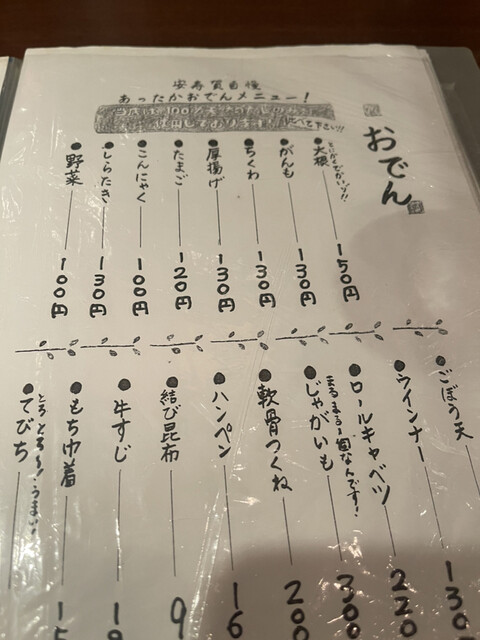 安寿賀自慢
あったかおでんメニュー!
当店は100%
使用しております。
食べて下さい!!
おでん
●大根 150円
●がんも 130円
●ちくわ 130円
●厚揚げ 130円
●たまご 120円
●こんにゃく 100円
●しらたき 130円
●野菜 100円
●ごぼう天 130
●ウインナー 220
●ロールキャベツ 300
●じゃがいも 200
まるまる一個なんです!
●軟骨つくね
●ハンペン 16
●結び昆布 9
●牛すじ 1
●もち巾着 15
●てびち
とろとろ〜!うまい!